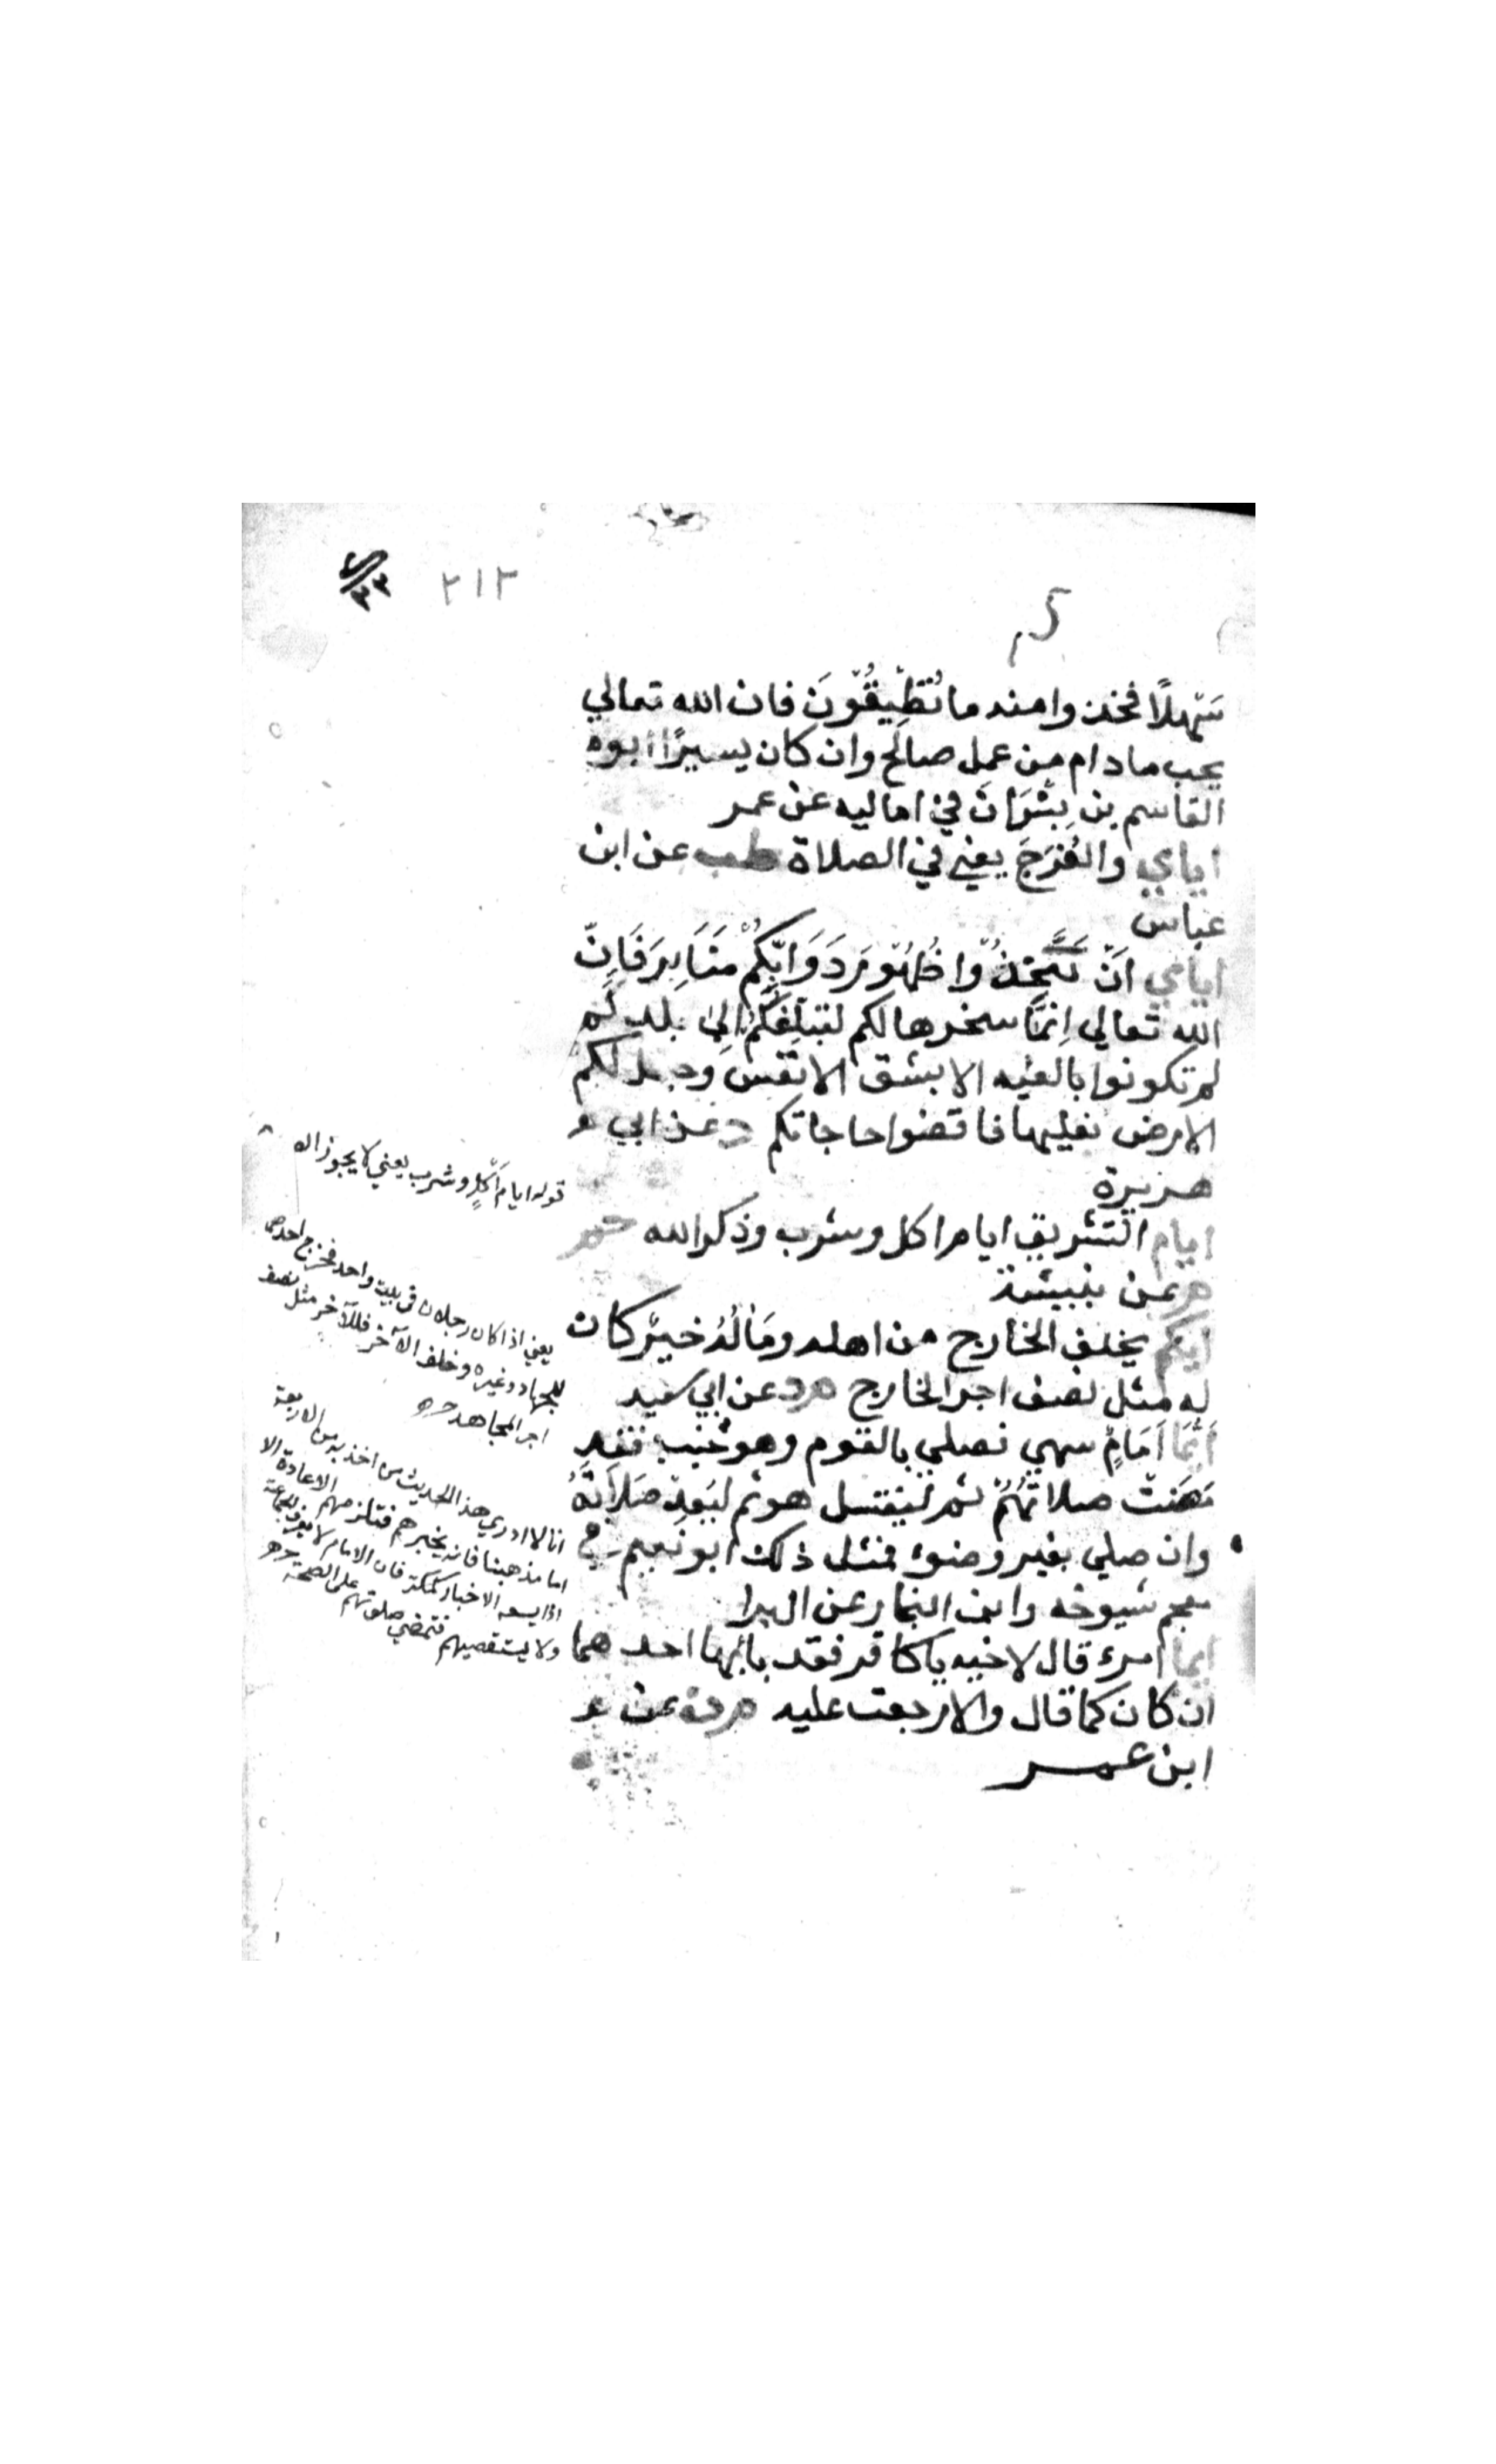 ٢١٢
سَهلًا فخذوا منه ما تُطِيقُونَ فان الله تعالي
يحب ما دام من عمل صالح وان كان يسيرًا ابو
القاسم بن بِشْرَانَ في اماليه عن عمر
اياي والفُرَجَ يعني في الصلاة طب عن ابن
عباس
اياي اَنْ تَتَّخِذُوا ظُهُورَ دَوَابِّكُمْ مَنَابِرَ فَاِنَّ
الله تعالي اِنَّمَا سخرها لكم لتبلغكُمْ اِلى بلد لم
لم تكونوا بالغيه الا بشق الانفس وجعل لكم
الارض فعليها فاقضوا حاجاتكم د عن ابي
هريرة
ايام التشريق ايام اكل وشرب وذكر الله حم
م عن نبيشة
ايكم يخلف الخارج من اهله ومَالُهُ خيرٍ كان
له مثل نصف اجر الخارج م د عن ابي سعيد
اَيُّمَا اَمَامٍ سهي فصلي بالقوم وهو جُنُب فقد
مَضَتْ صلاتُهُمْ ثم ليغتسل هو ثم ليُعِدْ صَلَاتَهُ
وان صلي بغير وضوء فمثل ذلك ابو نُعيم في
معجم شيوخه وابن النجار عن البرا
ايما امرء قال لاخيه يا كافر فقد باء بها احدهما
ان كان كما قال والا رجعت عليه م ت عن
ابن عمر
قوله ايام اَكْلٍ وشرب يعني لا يجوز
يعني اذا كان رجلان في بيت واحد فخرج احدهما
للجهاد وغيره وخلف الآخر فللآخر مثل نصف
اجر المجاهد
انا لا ادري هذا الحديث من اخذ به من الاربعة
اما مذهبنا فانه يخبرهم فتلزمهم الاعادة الا
اذا يسعه الاخبار فان الامام
ولا يستقصيهم فتمضي صلوتهم على الصحة